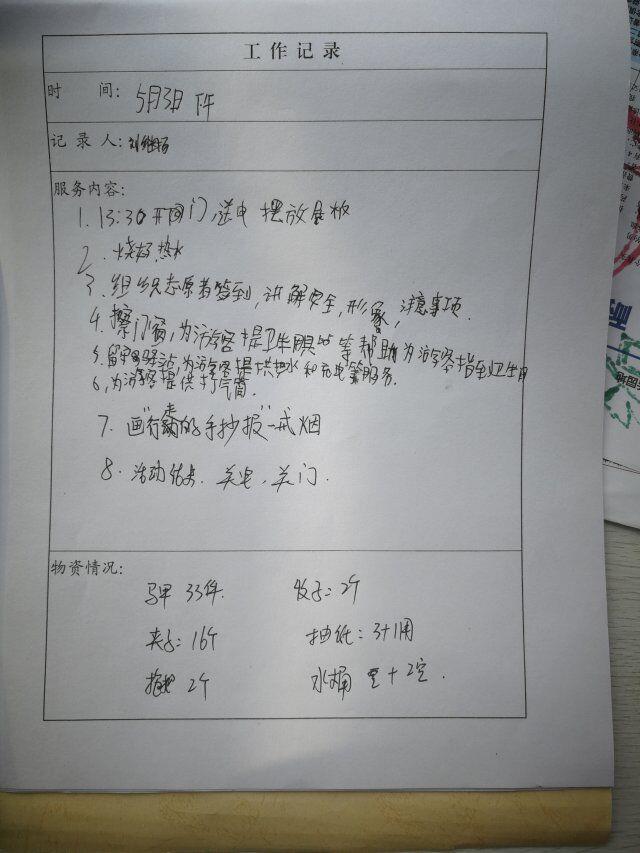 工作记录
时 间: 5月3日 下午
记 录 人: 刘继
服务内容:
1. 13:30 开门,送电 摆放展板
2. 烧好热水
3. 组织志愿者签到,讲解安全,形象,注意事项.
4. 擦门窗,为游客提卫生用具等 帮助为游客指到卫生间
5. 留守驿站,为游客提供热水和充电等服务.
6. 为游客提供打气筒.
7. 画"行走的手抄报"—戒烟
8. 活动结束. 关电,关门.
物资情况:
马甲 33件. 牧子: 2个
夹子: 16个 抽纸: 3+1用
拖把 2个 水桶 + 2空.